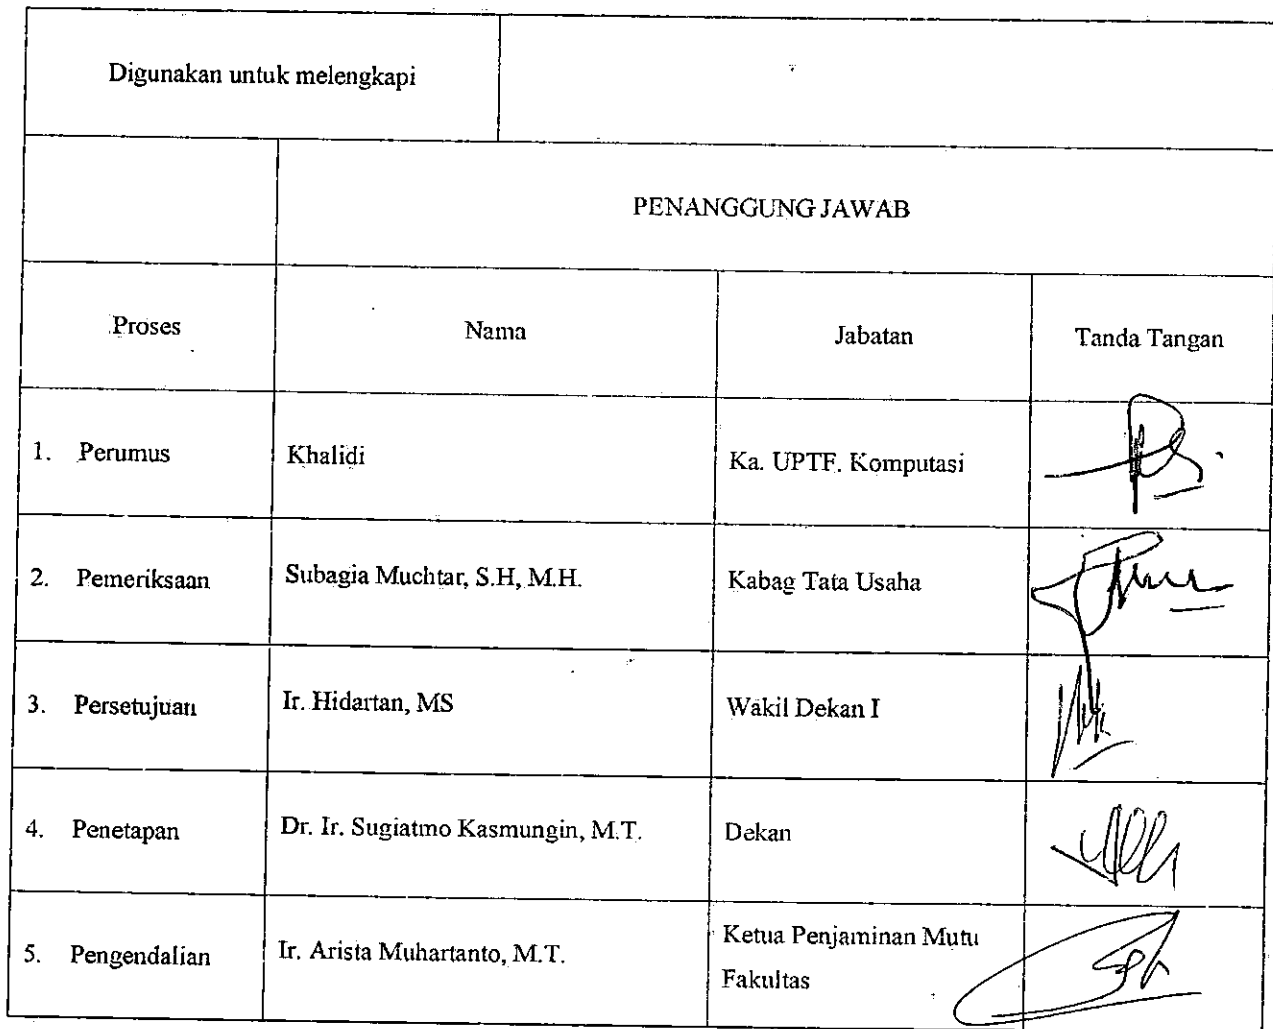 Digunakan untuk melengkapi
PENANGGUNG JAWAB
Proses Nama Jabatan Tanda Tangan
1. Perumus Khalidi Ka. UPTF. Komputasi
2. Pemeriksaan Subagia Muchtar, S.H, M.H. Kabag Tata Usaha
3. Persetujuan Ir. Hidartan, MS Wakil Dekan I
4. Penetapan Dr. Ir. Sugiatmo Kasmungin, M.T. Dekan
5. Pengendalian Ir. Arista Muhartanto, M.T. Ketua Penjaminan Mutu
Fakultas